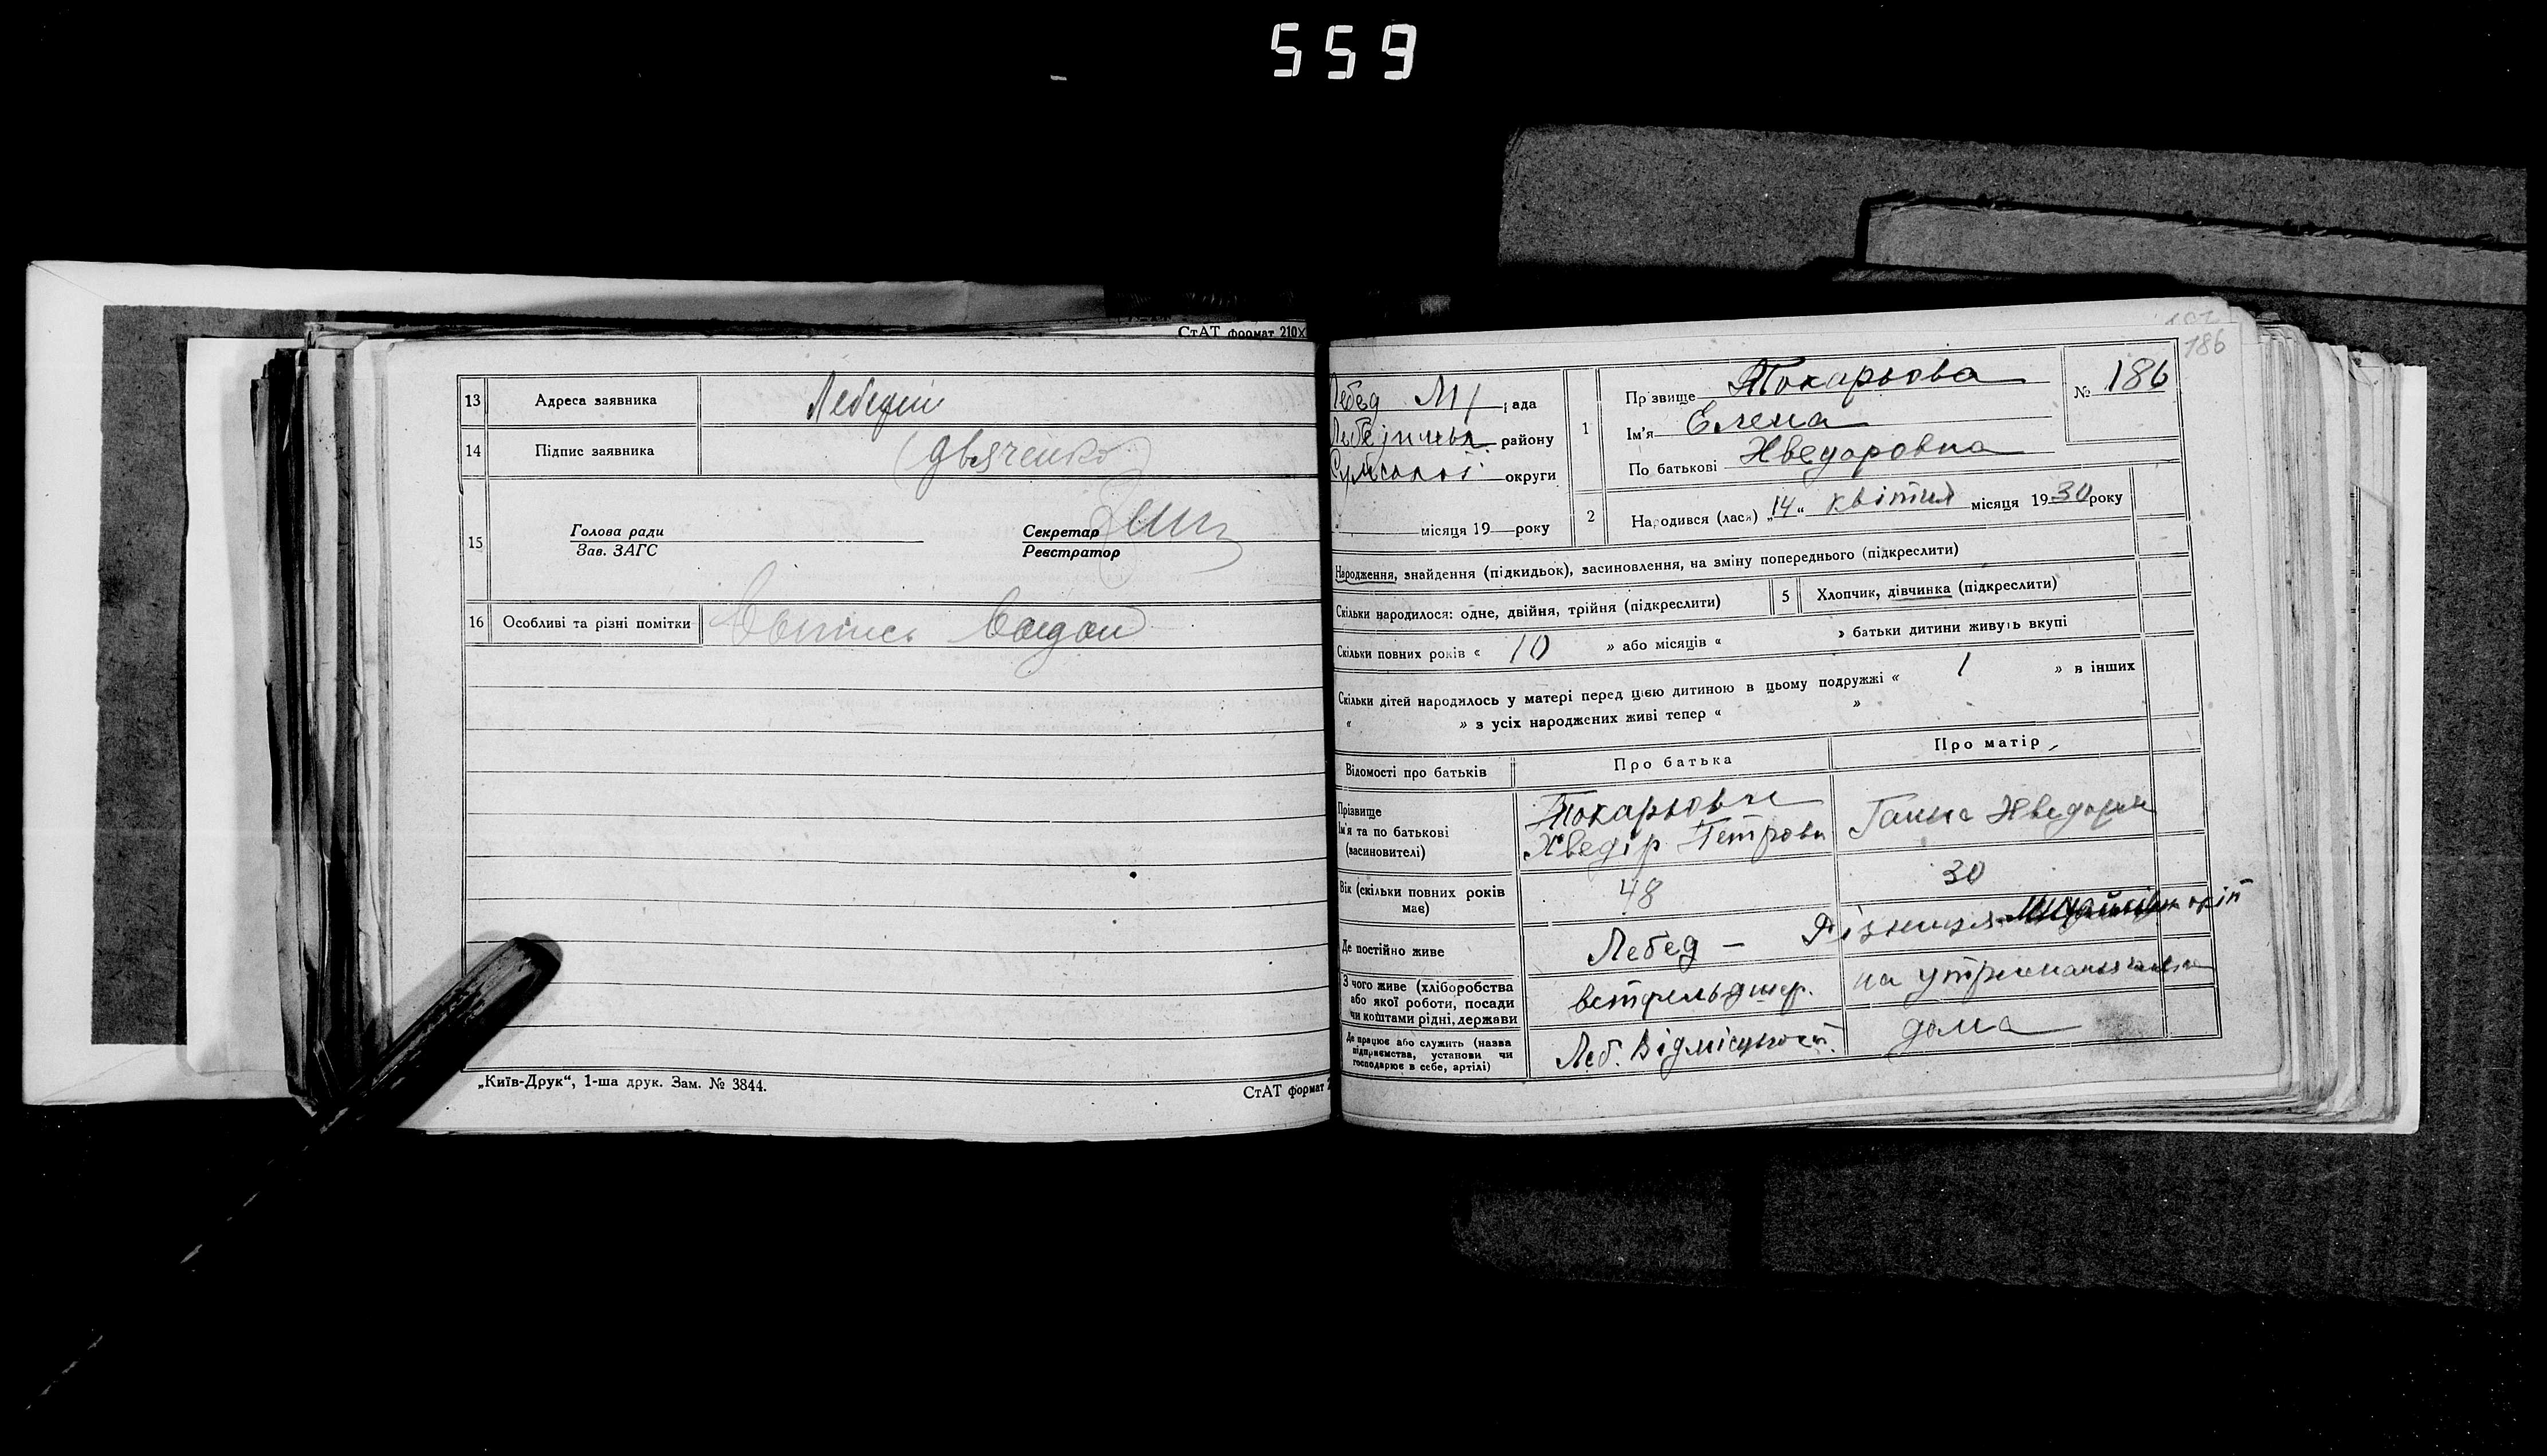 559
СтАТ формат 210X
13 Адреса заявника Лебедин
14 Підпис заявника (Дьяченко)
15 Голова ради
Зав. ЗАГС
Секретар
Реєстратор
16 Особливі та різні помітки
„Київ-Друк“, 1-ша друк. Зам. № 3844.
СтАТ формат 2
186
Лебед М/ рада
району
Сумської округи
місяця 19 року
1 Прізвище Токарьова
Ім'я Елена
По батькові Хведоровна
№ 186
2 Народився (лась) „14“ квітня місяця 1930 року
Народження, знайдення (підкидьок), засиновлення, на зміну попереднього (підкреслити)
Скільки народилося: одне, двійня, трійня (підкреслити) 5 Хлопчик, дівчинка (підкреслити)
Скільки повних років « 10 » або місяців « » батьки дитини живуть вкупі
Скільки дітей народилось у матері перед цією дитиною в цьому подружжі « 1 » в інших
« » з усіх народжених живі тепер « »
Відомості про батьків Про батька Про матір
Прізвище
Ім'я та по батькові
(засиновителі)
Токарьови
Хведір Петрови
Ганна Хведорин
Вік (скільки повних років
має)
48 30
Де постійно живе Лебед —
З чого живе (хліборобства
або якої роботи, посади
чи коштами рідні, держави
ветфельдшер. на утриманні
Де працює або служить (назва
підприємства, установи чи
господарює в себе, артілі)
Леб. дома